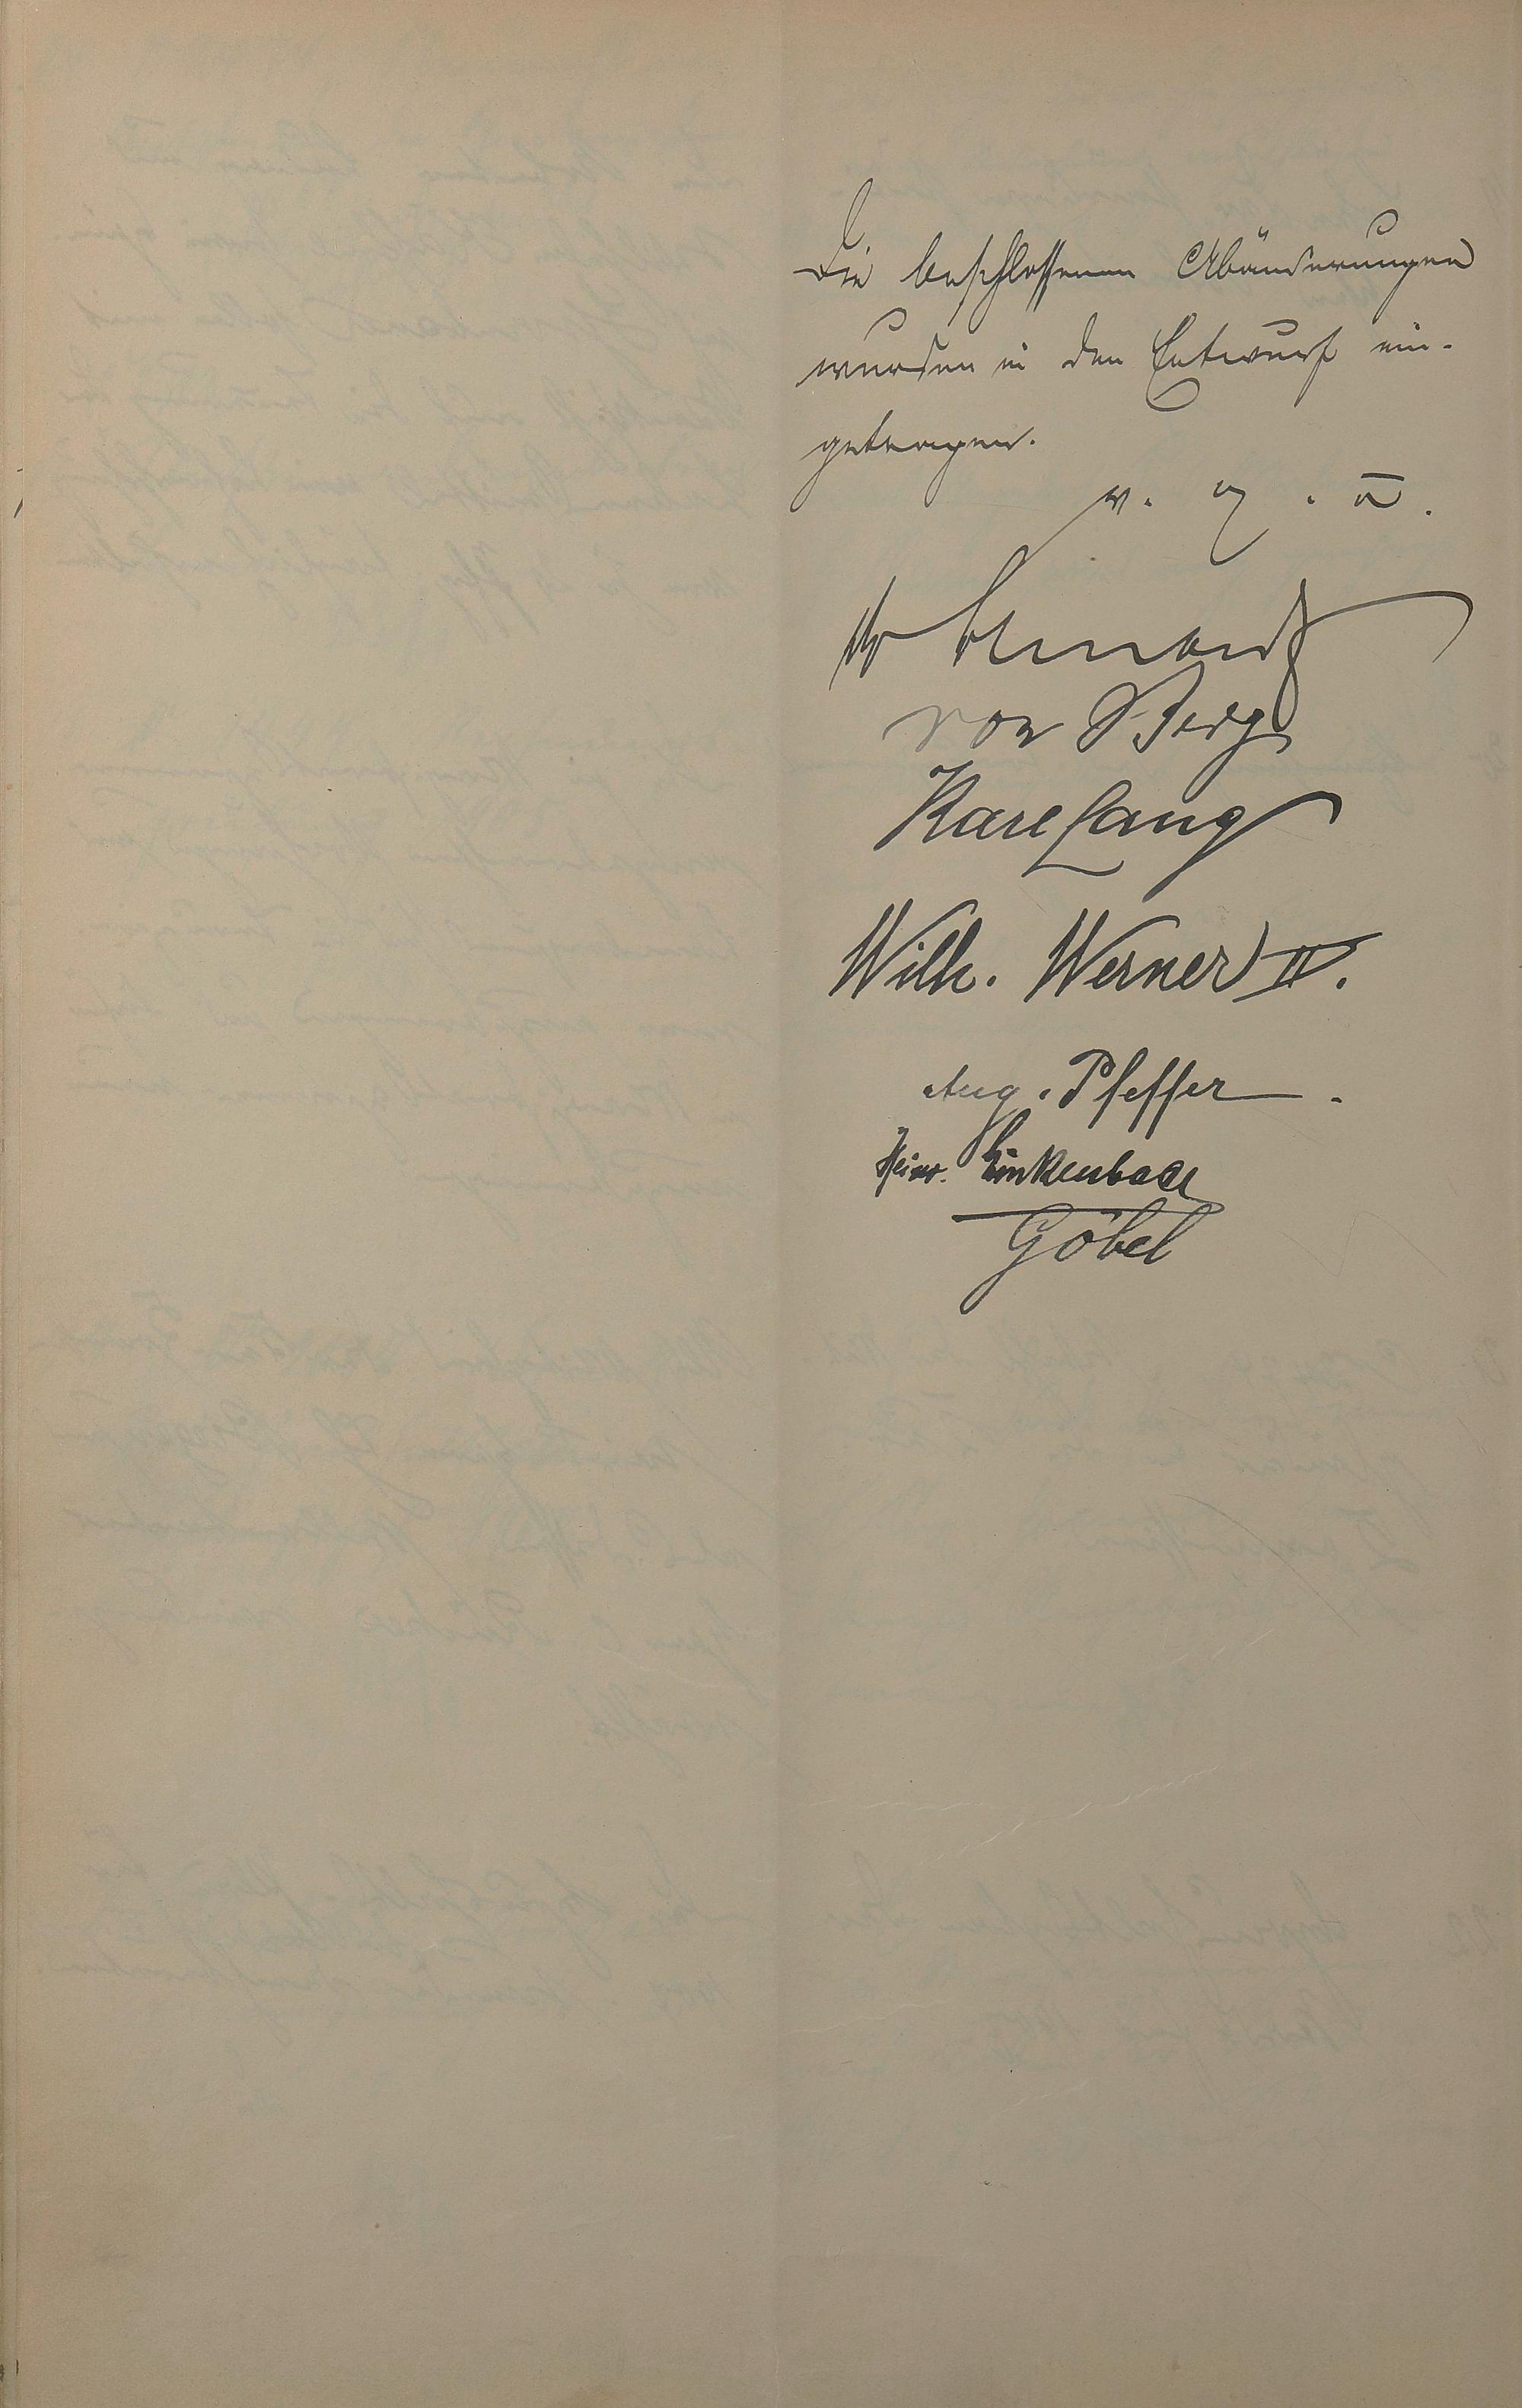 Die beschlossenen Abänderungen
wurden in den Entwurf ein-
getragen.
v. g. u.
von Berg
Karl Lang
Wilh. Werner II.
Aug. Pfeffer.
Heinr. Linkenbach
Göbel